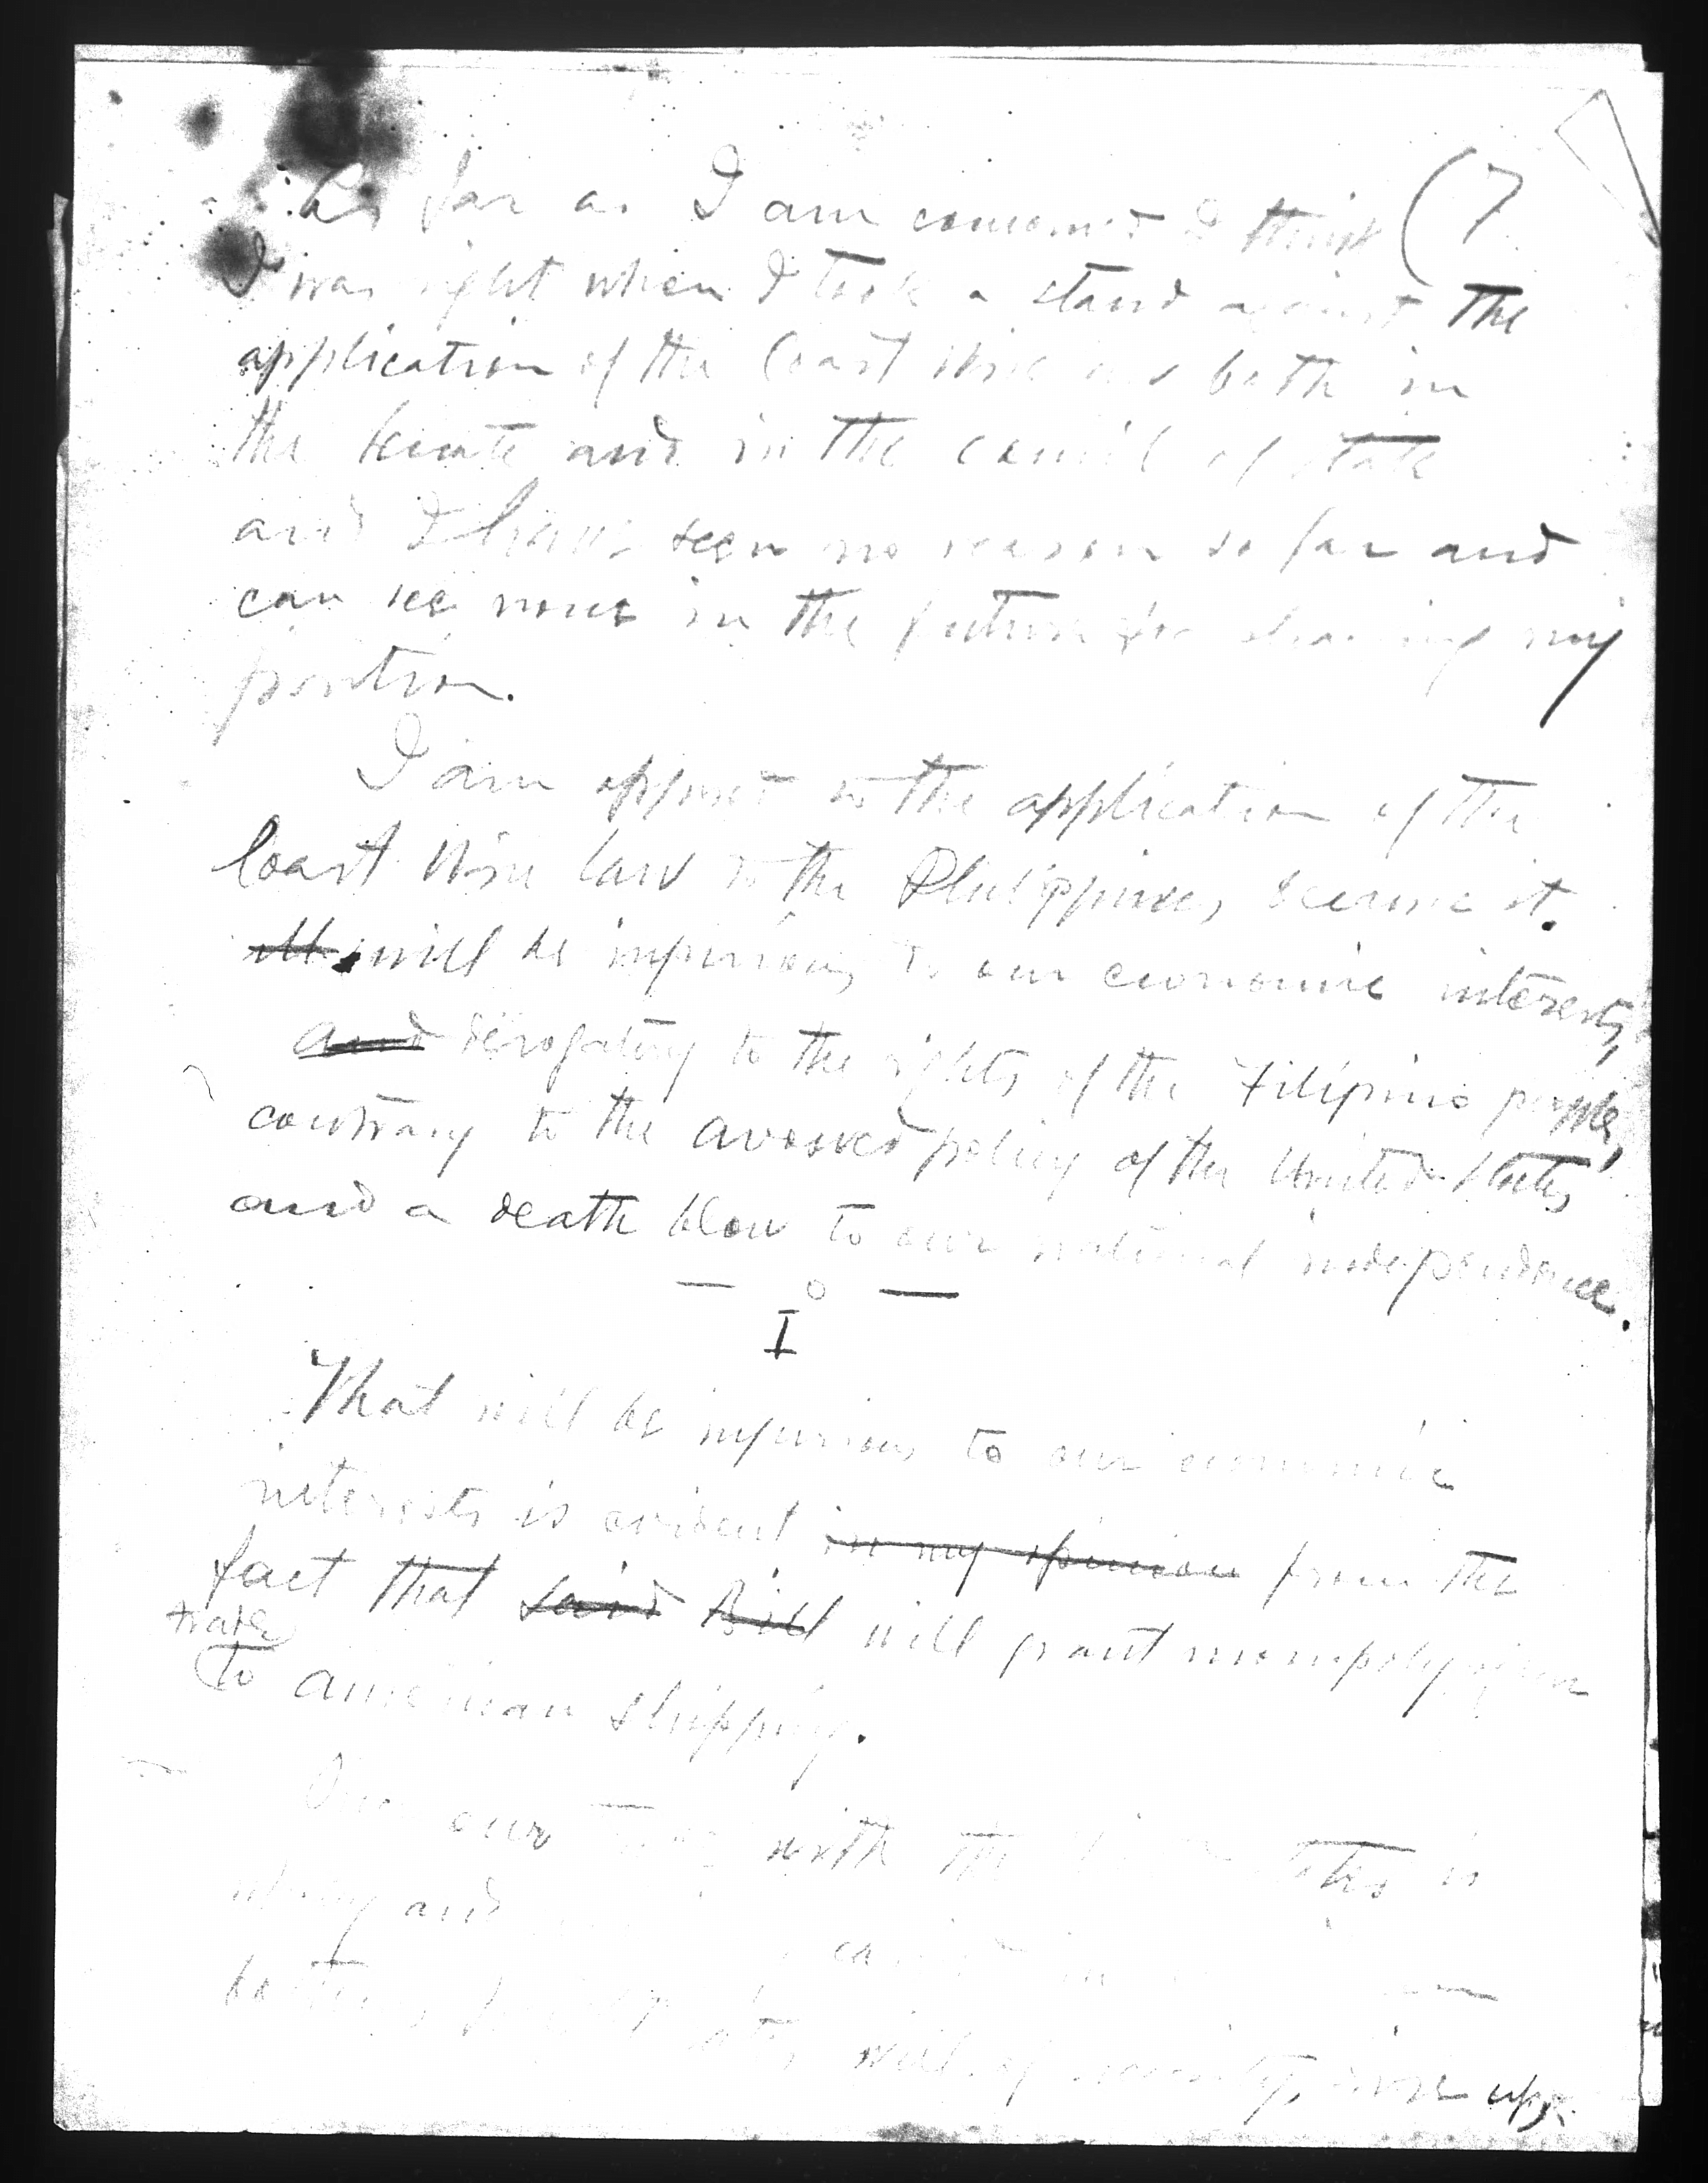 As far as I am concerned I think (7
I was right when I took a stand against the
application of the Coast wise law both in
the Senate and in the council of state
and I have seen no reason so far and
can see none in the future for changing my
position.
I am opposed to the application of the
Coast Wise Law to the Philippines, because it
will be injurious to our economic interests,
and derogatory to the rights of the Filipino people,
contrary to the avowed policy of the United States
and a death blow to our national independence.
— o —
I
That will be injurious to our economic
interests is evident in my opinion from the
fact that said Bill will grant monopoly of our
trade
to American shipping.
our with the States is
and
will of necessity, rise up,